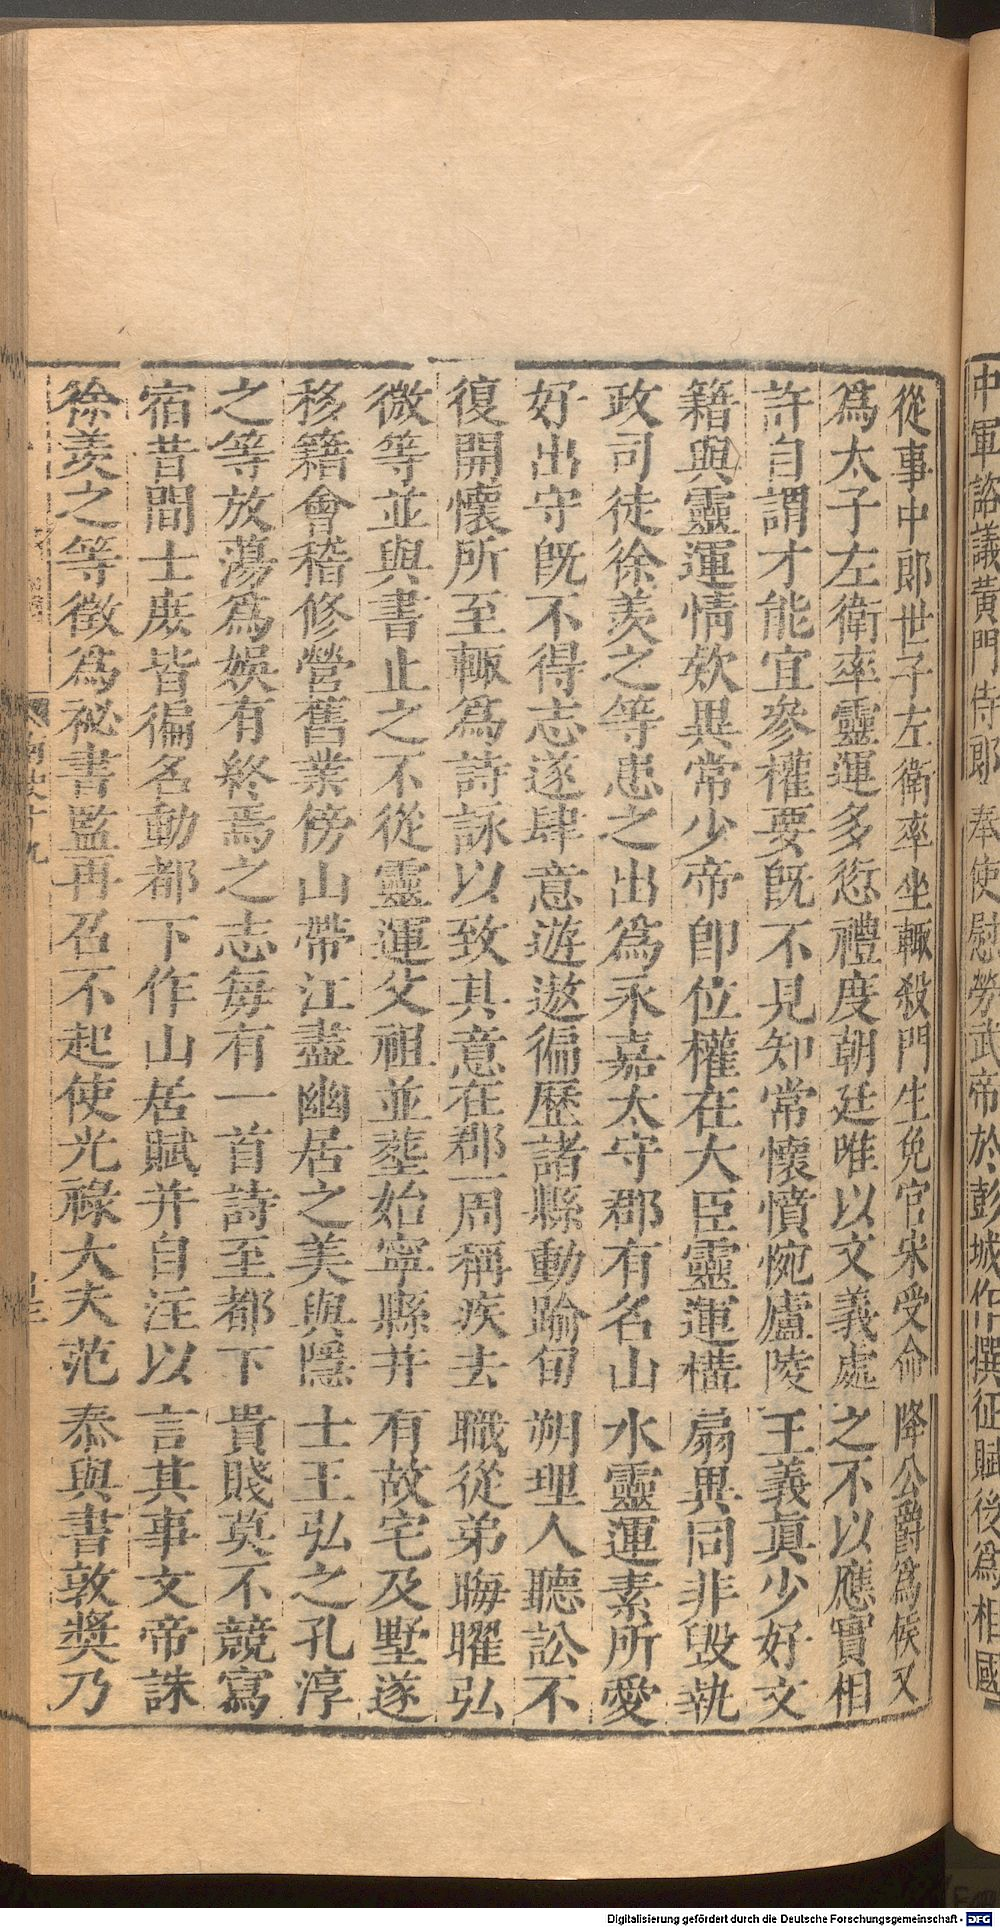 中軍諮議黄門侍郎奉使慰勞武帝於彭城作撰征賦後爲相國
從事中郎世子左衛率坐輒殺門生免官宋受命降公爵爲侯又
爲太子左衛率靈運多愆禮度朝廷唯以文義處之不以應實相
許自謂才能宜參權要旣不見知常懷憤惋廬陵王義眞少好文
籍與靈運情欵異常少帝卽位權在大臣靈運構扇異同非毀執
政司徒徐羨之等患之出爲永嘉太守郡有名山水靈運素所愛
好出守旣不得志遂肆意遊遨徧歷諸縣動踰旬朔理人聽訟不
復開懷所至輒爲詩詠以致其意在郡一周稱疾去職從弟晦曜弘
微等並與書止之不從靈運父祖並塟始寧縣并有故宅及墅遂
移籍會稽修營舊業傍山帶江盡幽居之美與隱士王弘之孔淳
之等放蕩爲娛有終焉之志每有一首詩至都下貴賤莫不競寫
宿昔間士庶皆徧名動都下作山居賦并自注以言其事文帝誅
徐羨之等徵爲祕書監再召不起使光祿大夫范泰與書敦奬乃
Digitalisierung gefördert durch die Deutsche Forschungsgemeinschaft - DFG